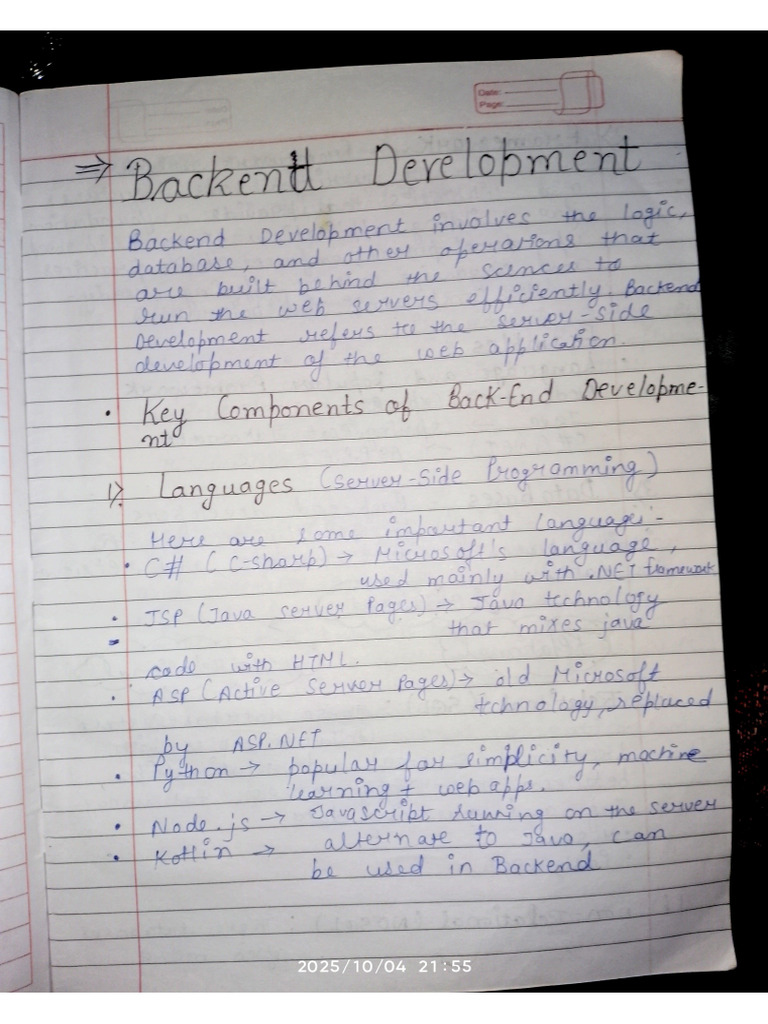 Date:
Page:
⇒ Backend Development
Backend Development involves the logic,
database, and other operations that
are built behind the scences to
run the web servers efficiently. Backend
Development refers to the server-side
development of the web application.
• Key Components of Back-End Developme-
nt
1). Languages (Server-Side Programming)
Here are some important languages:-
• C# (C-sharp) → Microsoft's language,
used mainly with .NET framework
• JSP (Java server Pages) → Java technology
that mixes java
code with HTML.
• ASP (Active Server Pages) → old Microsoft
technology, replaced
by ASP.NET
• Python → popular for simplicity, machine
learning + web apps.
• Node.js → Javascript running on the server
• Kotlin → alternare to Java, can
be used in Backend
2025/10/04 21:55